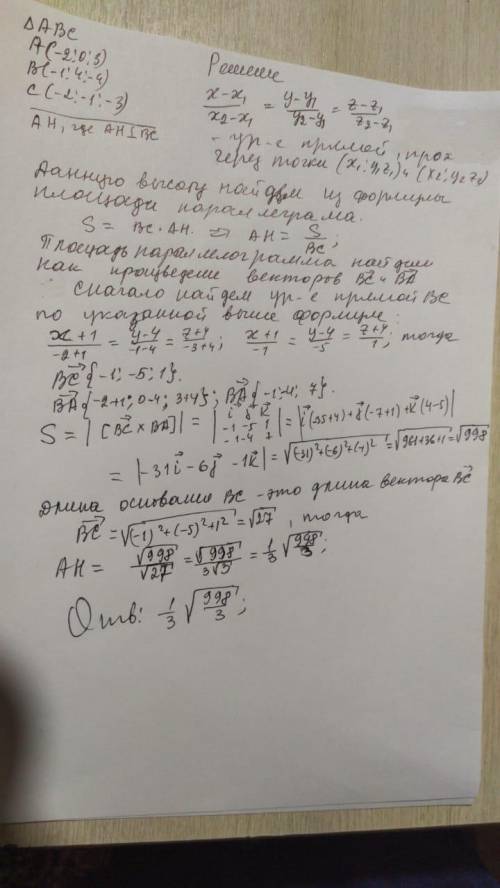 △ABC
A(-2; 0; 3)
B(-1; 4; -4)
C(-2; -1; -3)
AH, где AH⊥BC
Решение
x-x₁/x₂-x₁ = y-y₁/y₂-y₁ = z-z₁/z₂-z₁
- ур-е прямой, прох
через точки (x₁; y₁; z₁) и (x₂; y₂; z₂)
Данную высоту найдем из формулы
площади параллеграма.
S = BC·AH. ⇒ AH = S/BC;
Площадь параллелограмма найдем
как произведение векторов BC и BA
Сначало найдем ур-е прямой BC
по указанной выше формуле:
x+1/-2+1 = y-4/-1-4 = z+4/-3+4; x+1/-1 = y-4/-5 = z+4/1; тогда
BC{-1; -5; 1}.
BA{-2+1; 0-4; 3+4}; BA{-1; -4; 7}.
S = |[BC × BA]| = |i j k; -1 -5 1; -1 -4 7| = |i(-35+4) + j(-7+1) + k(4-5)|
= |-31i - 6j - 1k| = √(-31)²+(-6)²+(-1)² = √961+36+1 = √998
Длина основание BC - это длина вектора BC
BC = √(-1)²+(-5)²+1² = √27, тогда
AH = √998/√27 = √998/3√3 = 1/3 √998/3;
Отв: 1/3 √998/3;